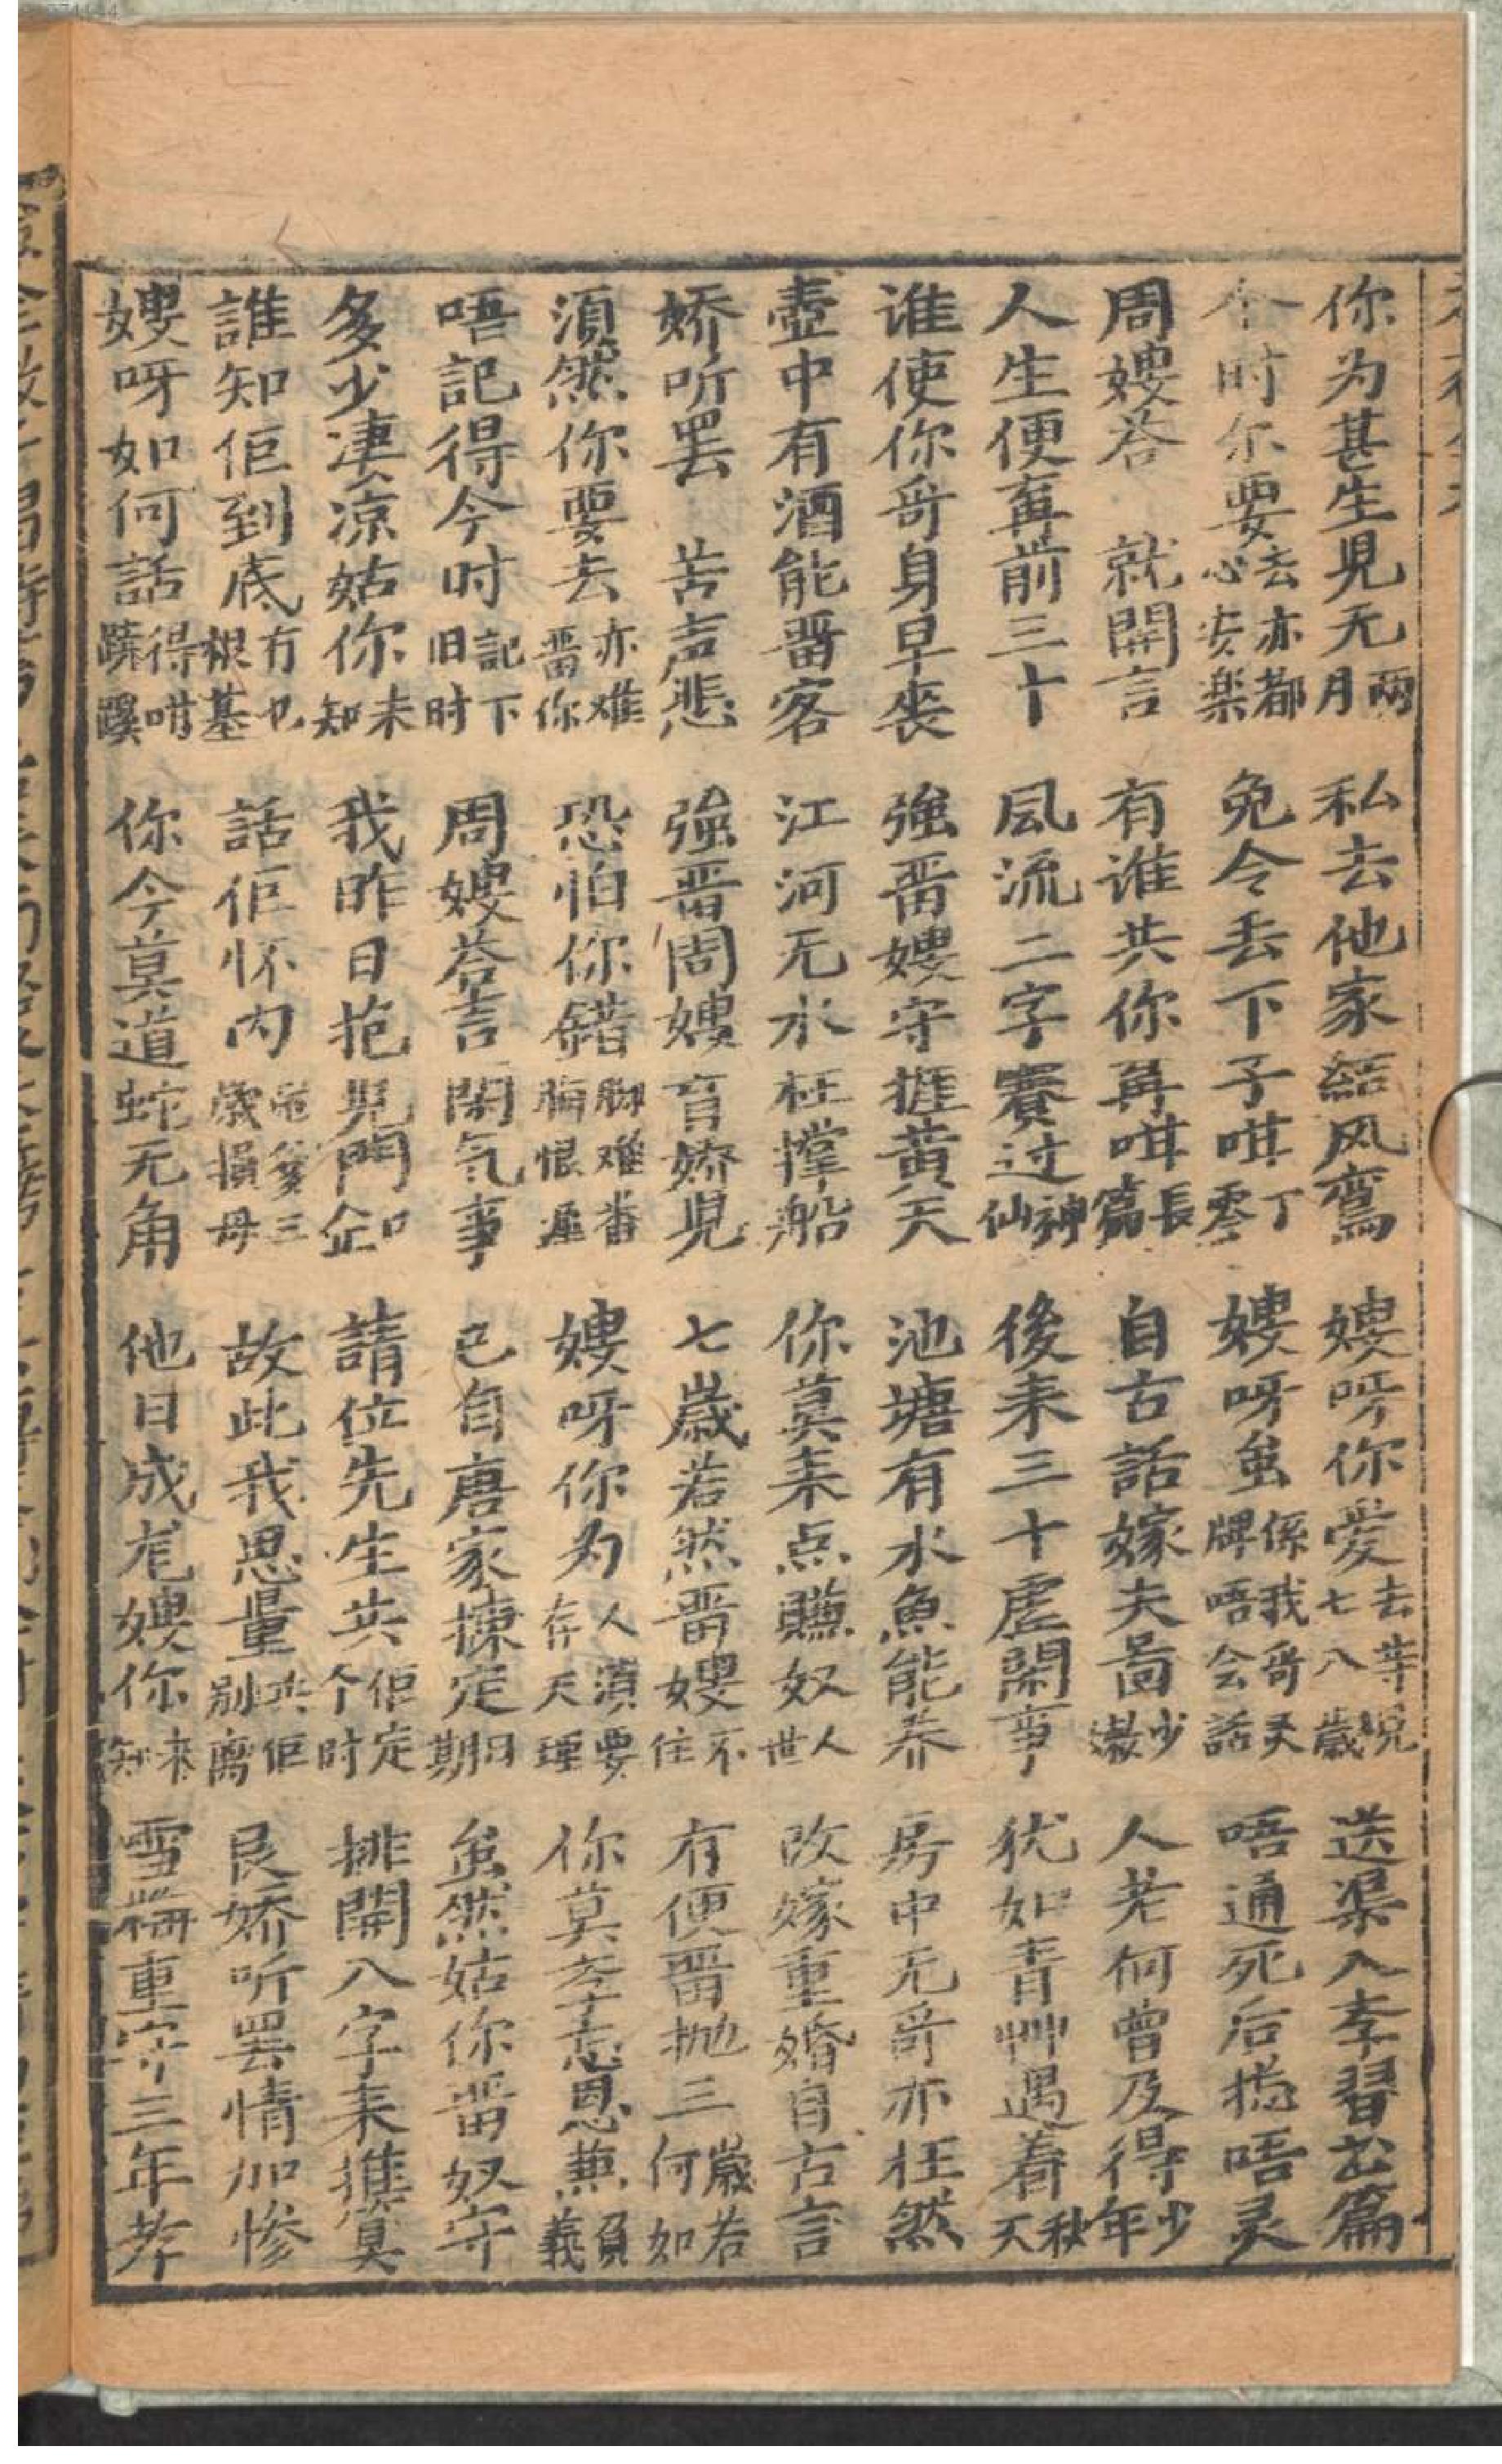 你为甚生児无両月 私去他家結风鸾 嫂呀你爱去等児七八歳 送渠入李習出篇
个时尔要去亦都心安楽 免令丢下子咁丁零 嫂呀虽係我哥灵牌唔会話 唔通死后揔唔灵
周嫂荅 就開言 有谁共你再咁長篇 自古話嫁夫啚少 人老何曾及得少年
人生便再前三十 風流二字賽过神仙 後耒三十虗閑事 犹如青艸遇着秋天
谁使你哥身早丧 強畱嫂守捱黄天 池塘有水魚能养 房中无哥亦枉然
壺中有酒能畱客 江河无水枉撑船 你莫耒点賺奴人世 改嫁重婚自古言
娇听罢 苦声悲 強畱周嫂育娇児 七歳若然畱嫂不住 有便畱抛三歳若何如
湏然你要去亦难畱你 恐怕你錯脚难番悔恨遲 嫂呀你为人湏要存天理 你莫孛志恩無負義
唔記得今时記下旧时 周嫂荅言閑気事 已自唐家揀定日期 虽然姑你畱奴守
多少凄凉姑你未知 我昨日抱児門口企 請位先生共佢定个时 排開八字耒推算
誰知佢到底冇也根基 話佢怀内尅爹三歳損母 故此我思量共佢别离 良娇听罢情加惨
嫂呀如何話得咁蹺蹊 你今莫道蛇无角 他日成尨嫂你來知 雪梅重守三年孝